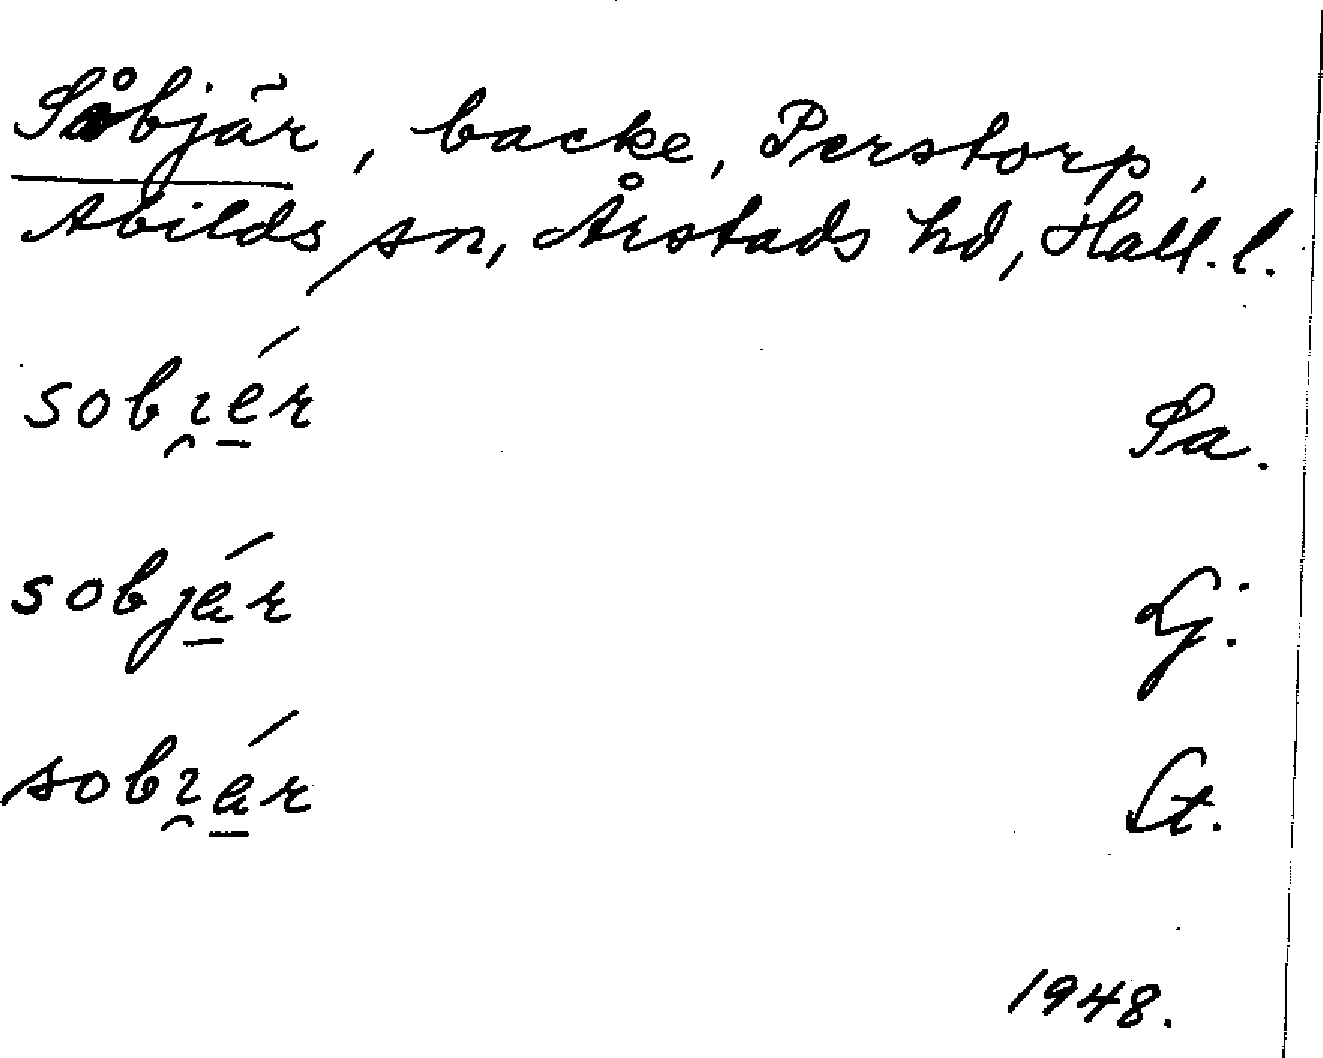 Såbjär, backe, Perstorp,
Abilds sn, Årstads hd, Hall. l.
sobı̯é̱r Sa.
sobjǽ̱r Lj.
sobı̯ǽ̱r St.
1948.